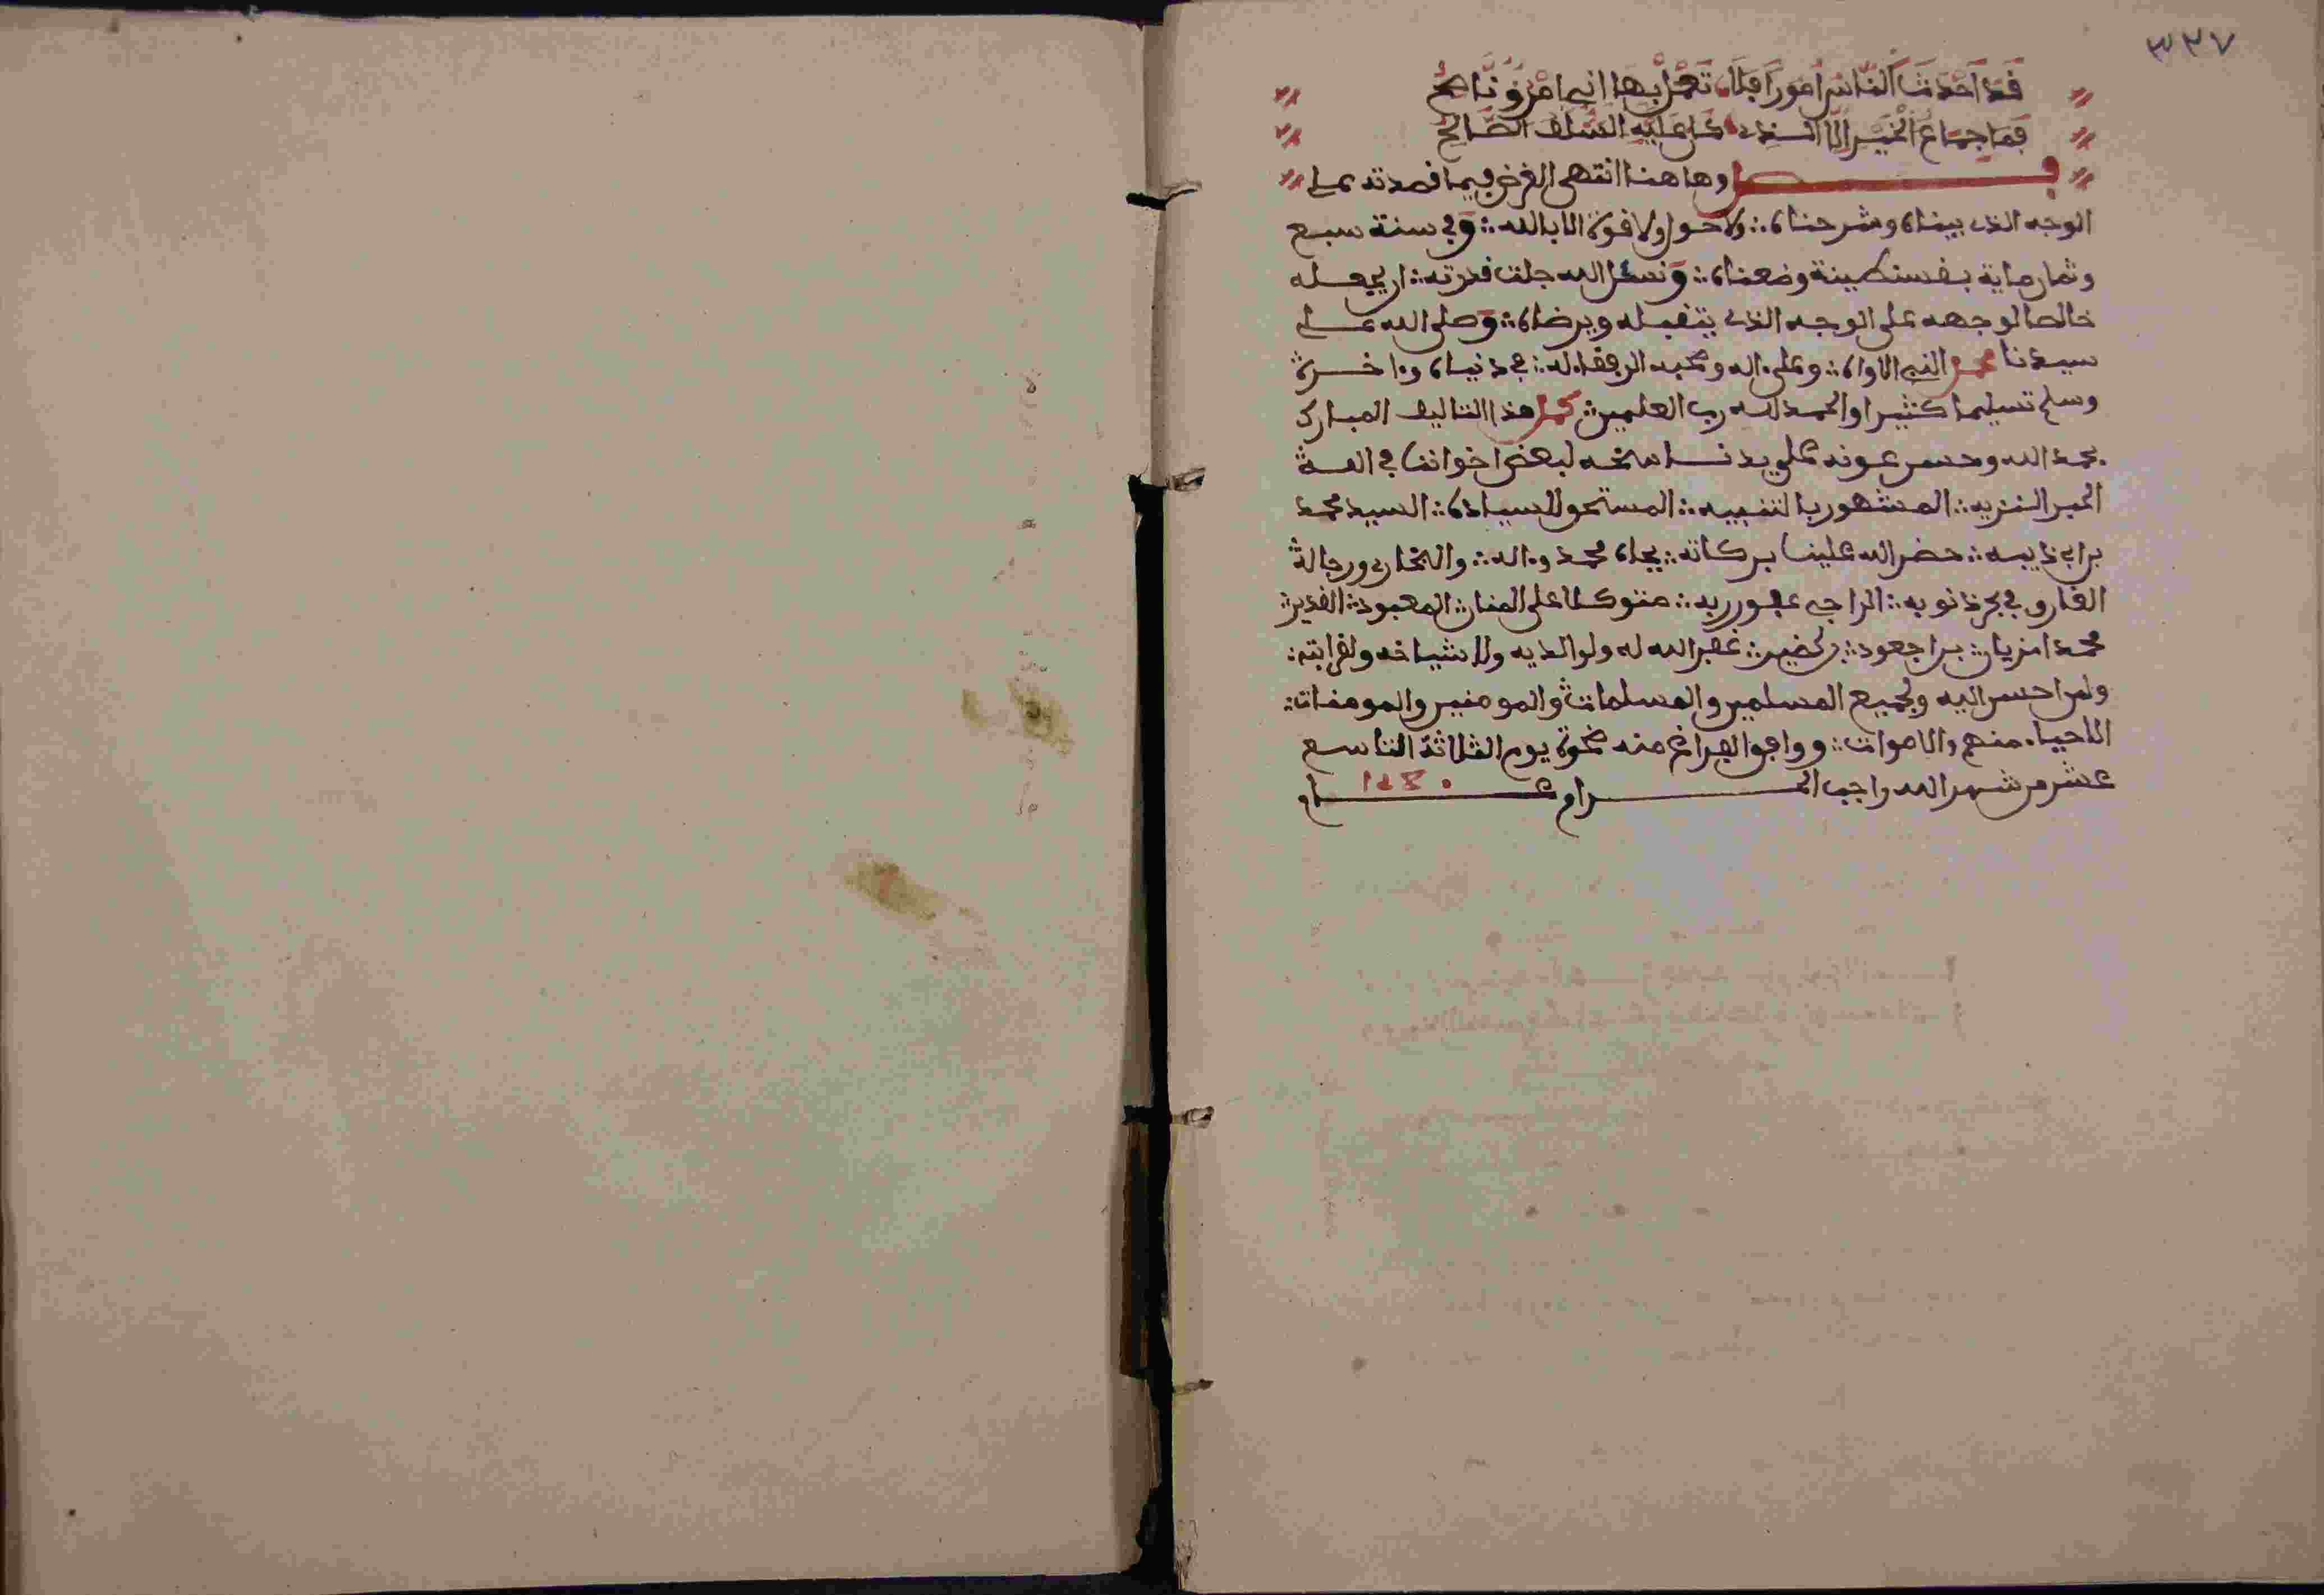 ٣٣٧
قَدَ اَحْدَثَ النَّاسُ اُمُورًا فَلَا تَعْمَلْ بِهَا اِنِّي امْرُؤٌ نَّاصِحُ
فَمَا جِمَاعُ الْخَيْرِ اِلَّا الَّذِي كَانَ عَلَيْهِ السَّلَفُ الصَّالِحُ
فصل وهاهنا انتهى الغرض فيما قصدته على
الوجه الذي بيناه وشرحناه ولا حول ولا قوة الا بالله وفي سنة سبع
وثمان ماية بقسنطينة وضعناه ونسئل الله جلت قدرته ان يجعله
خالصا لوجهه على الوجه الذي يتقبله ويرضاه وصلى الله على
سيدنا محمد النبي الاواه وعلى ءاله وصحبه الرفقاء له في دنياه وءاخرة
وسلم تسليما كثيرا والحمد لله رب العلمين كمل هذا التاليف المبارك
بحمد الله وحسن عونه على يد ناسخه لبعض اخواننا في الله
الحبر النزيه المشهور بالتنبيه المستحق للسيادة السيد محمد
بن ابي ذيبه حضر الله علينا بركاته بجاه محمد وءاله والبخاري ورجاله
الغارق في بحر ذنوبه الراجي عفو ربه متوكلا على المنان المعبود القدير
محمد امزيان بن اجعود بن لخضر غفر الله له ولوالديه ولاشياخه ولقرابته
ولمن احسن اليه ولجميع المسلمين والمسلمات والمومنين والمومنات
الاحياء منهم والاموات ووافق الفراغ منه ضحوة يوم الثلاثة التاسع
عشر من شهر الله واجب الحرام عام